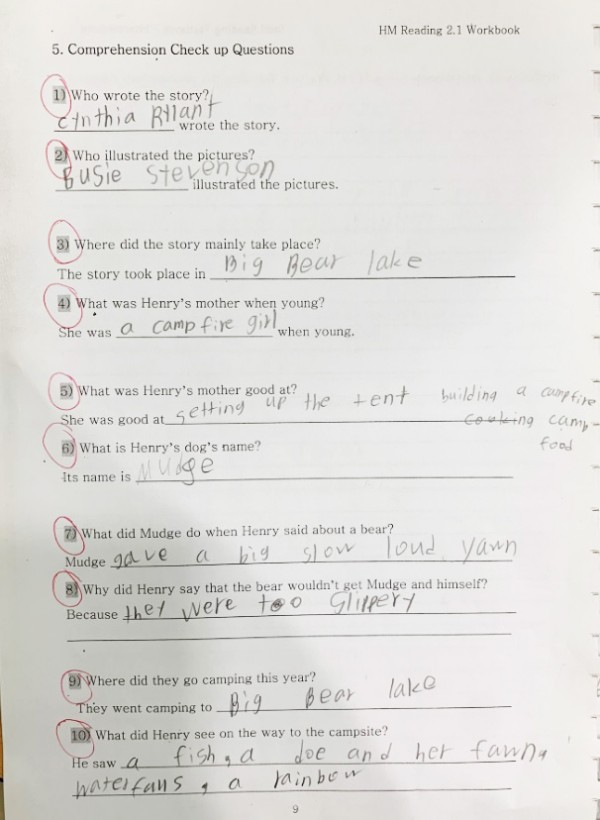 HM Reading 2.1 Workbook
5. Comprehension Check up Questions
1) Who wrote the story?
Cynthia Rylant wrote the story.
2) Who illustrated the pictures?
Susie Stevenson illustrated the pictures.
3) Where did the story mainly take place?
The story took place in Big Bear lake
4) What was Henry's mother when young?
She was a campfire girl when young.
5) What was Henry's mother good at?
She was good at setting up the tent building a campfire
cooking camp
food
6) What is Henry's dog's name?
Its name is Mudge
7) What did Mudge do when Henry said about a bear?
Mudge gave a big slow loud yawn
8) Why did Henry say that the bear wouldn't get Mudge and himself?
Because they were too Slippery
9) Where did they go camping this year?
They went camping to Big Bear lake
10) What did Henry see on the way to the campsite?
He saw a fish, a doe and her fawn,
waterfalls, a rainbow
9